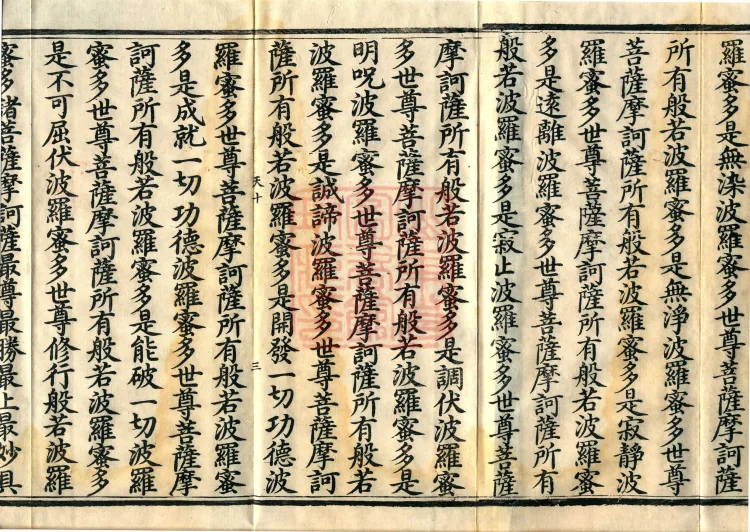 羅蜜多是無染波羅蜜多世尊菩薩摩訶薩
所有般若波羅蜜多是無淨波羅蜜多世尊
菩薩摩訶薩所有般若波羅蜜多是寂靜波
羅蜜多世尊菩薩摩訶薩所有般若波羅蜜
多是遠離波羅蜜多世尊菩薩摩訶薩所有
般若波羅蜜多是寂止波羅蜜多世尊菩薩
摩訶薩所有般若波羅蜜多是調伏波羅蜜
多世尊菩薩摩訶薩所有般若波羅蜜多是
明呪波羅蜜多世尊菩薩摩訶薩所有般若
波羅蜜多是誠諦波羅蜜多世尊菩薩摩訶
薩所有般若波羅蜜多是開發一切功德波
天十 三
羅蜜多世尊菩薩摩訶薩所有般若波羅蜜
多是成就一切功德波羅蜜多世尊菩薩摩
訶薩所有般若波羅蜜多是能破一切波羅
蜜多世尊菩薩摩訶薩所有般若波羅蜜多
是不可屈伏波羅蜜多世尊修行般若波羅
蜜多諸菩薩摩訶薩最尊最勝最上最妙具